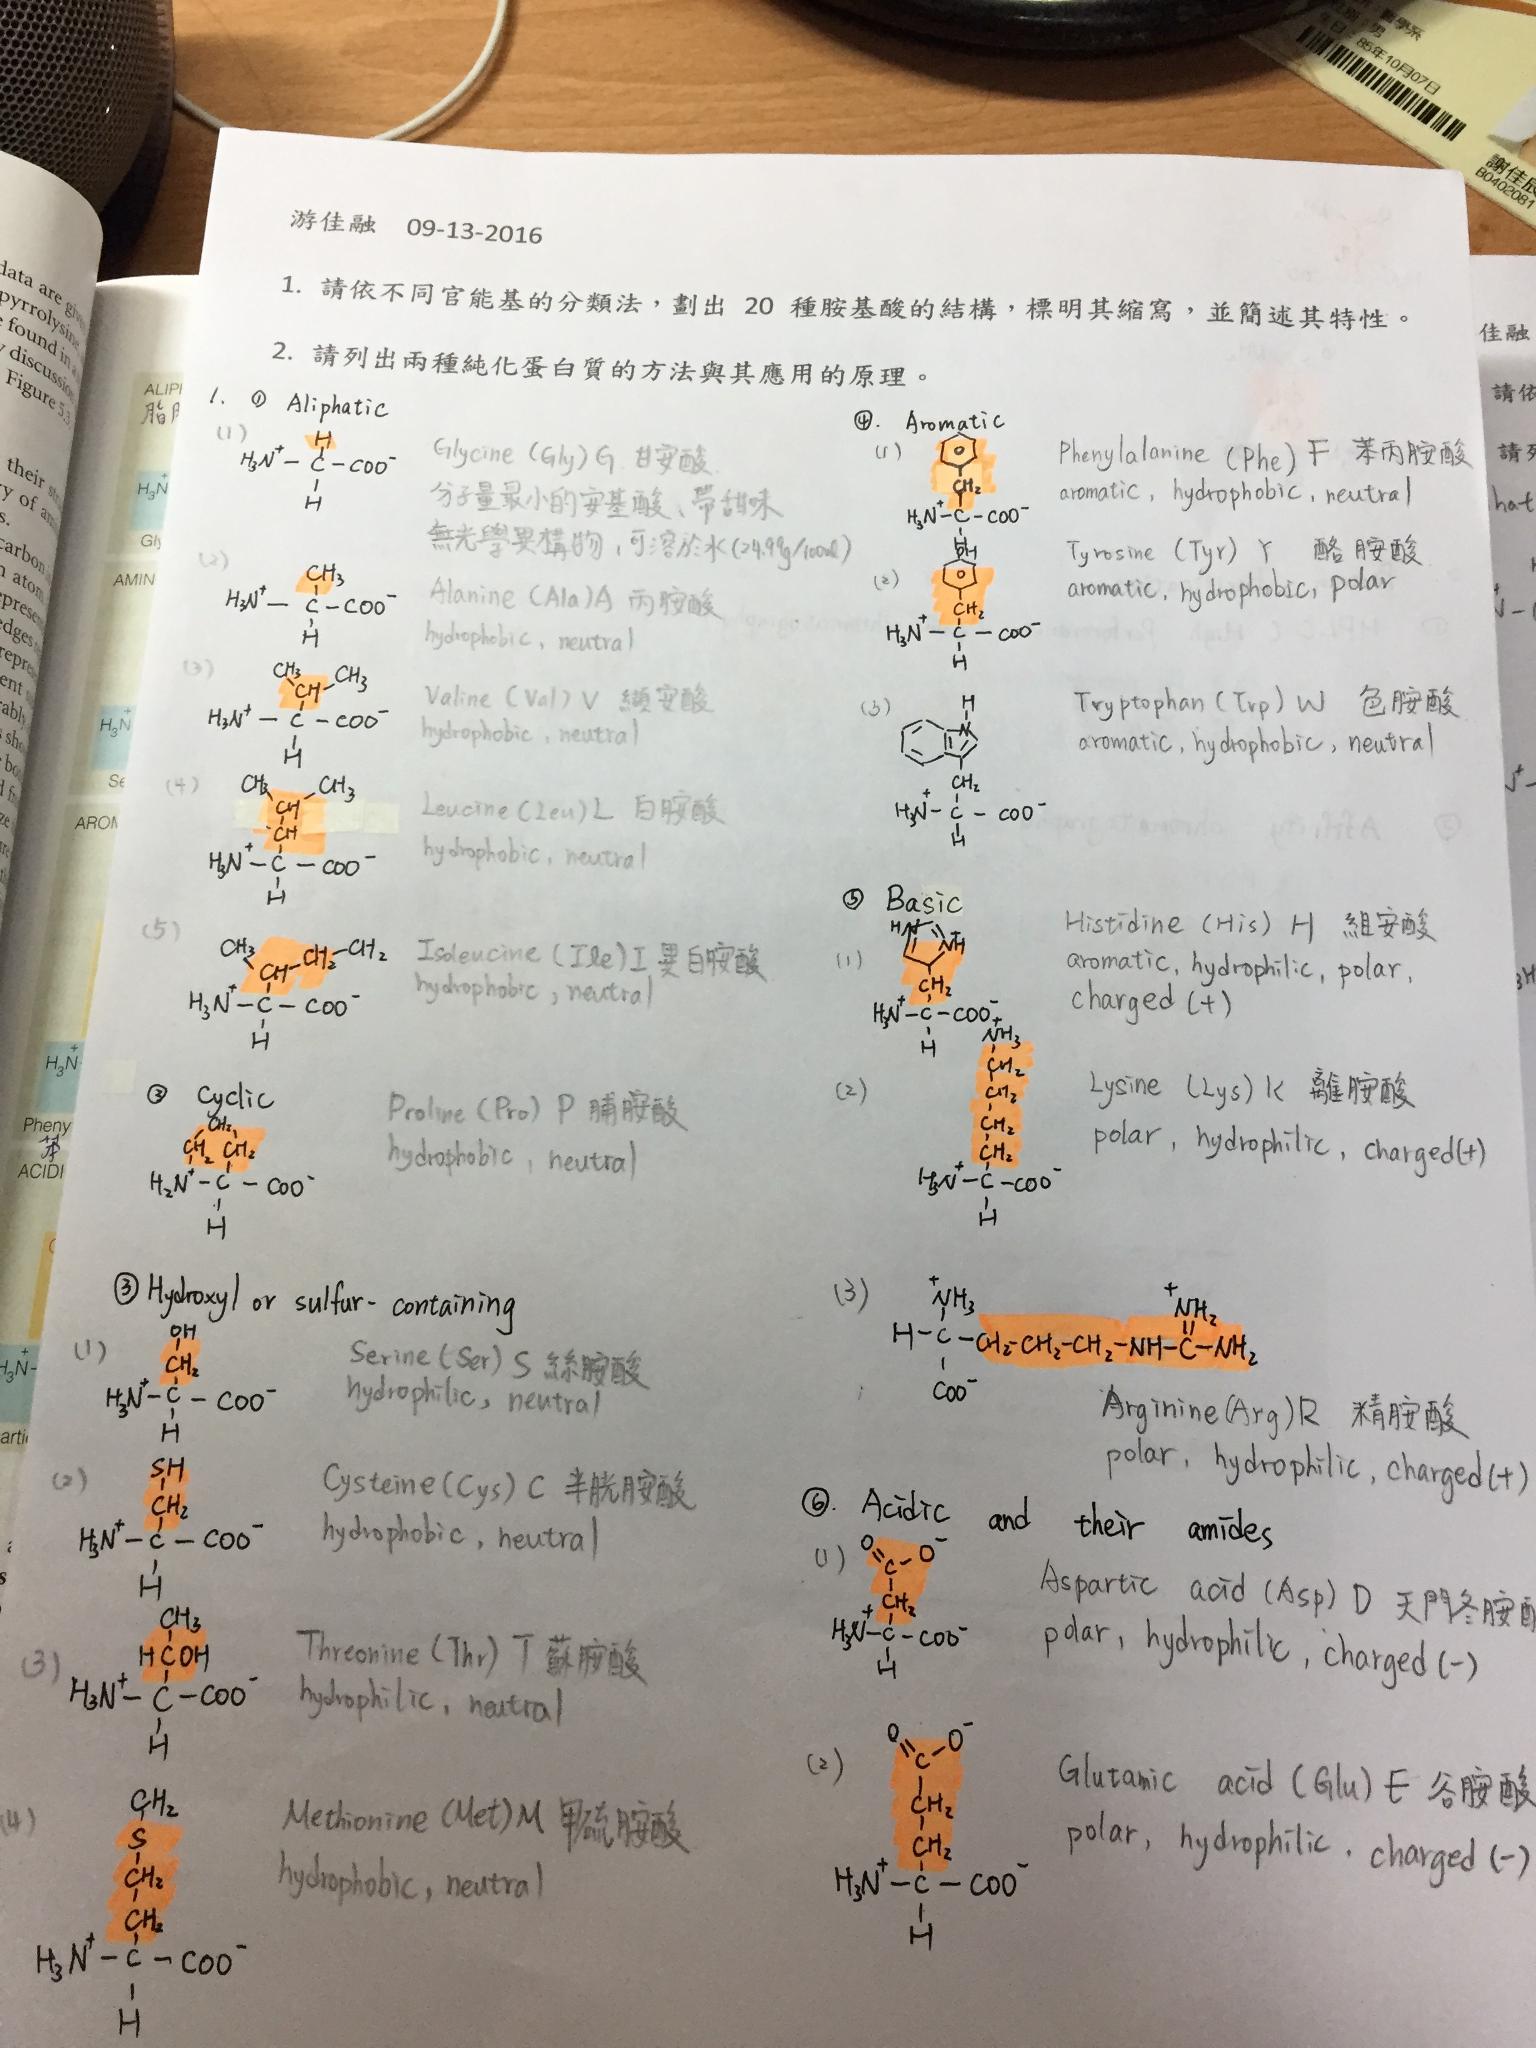 醫學系
男
86年10月07日
謝佳辰
B0402081
data are
pyrrolysine
found in a
discussion
Figure 5.3
their
carbon
n atom
ALIP
H₃N⁺
Gly
AMIN
H₃N⁺
Se
AROM
H₃N⁺
Pheny
苯
ACIDI
H₃N⁺
佳融
請依
請列
游佳融 09-13-2016
1. 請依不同官能基的分類法，劃出 20 種胺基酸的結構，標明其縮寫，並簡述其特性。
2. 請列出兩種純化蛋白質的方法與其應用的原理。
1. ① Aliphatic
(1)
H
H₃N⁺－C－COO⁻
H
Glycine (Gly) G 甘安酸
分子量最小的安基酸、帶甜味
無光學異構物，可溶於水(24.99g/100ml)
(2)
CH₃
H₃N⁺－C－COO⁻
H
Alanine (Ala) A 丙胺酸
hydrophobic, neutral
(3)
CH₃ CH CH₃
H₃N⁺－C－COO⁻
H
Valine (Val) V 纈安酸
hydrophobic, neutral
(4)
CH₃ CH₃
CH
CH
H₃N⁺－C－COO⁻
H
Leucine (Leu) L 白胺酸
hydrophobic, neutral
(5)
CH₃ CH－CH₂－CH₂
H₃N⁺－C－COO⁻
H
Isoleucine (Ile) I 異白胺酸
hydrophobic, neutral
② Cyclic
CH₂
CH₂ CH₂
H₂N⁺－C－COO⁻
H
Proline (Pro) P 脯胺酸
hydrophobic, neutral
③ Hydroxyl or sulfur-containing
(1)
OH
CH₂
H₃N⁺－C－COO⁻
H
Serine (Ser) S 絲胺酸
hydrophilic, neutral
(2)
SH
CH₂
H₃N⁺－C－COO⁻
H
Cysteine (Cys) C 半胱胺酸
hydrophobic, neutral
(3)
CH₃
HCOH
H₃N⁺－C－COO⁻
H
Threonine (Thr) T 蘇胺酸
hydrophilic, neutral
(4)
CH₂
S
CH₂
CH₂
H₃N⁺－C－COO⁻
H
Methionine (Met) M 甲硫胺酸
hydrophobic, neutral
④. Aromatic
(1)
CH₂
H₃N⁺－C－COO⁻
H
Phenylalanine (Phe) F 苯丙胺酸
aromatic, hydrophobic, neutral
(2)
OH
CH₂
H₃N⁺－C－COO⁻
H
Tyrosine (Tyr) Y 酪胺酸
aromatic, hydrophobic, polar
(3)
H
N
CH₂
H₃N⁺－C－COO⁻
H
Tryptophan (Trp) W 色胺酸
aromatic, hydrophobic, neutral
⑤ Basic
(1)
HN NH⁺
CH₂
H₃N⁺－C－COO⁻
H
Histidine (His) H 組安酸
aromatic, hydrophilic, polar,
charged (+)
(2)
⁺NH₃
CH₂
CH₂
CH₂
CH₂
H₃N⁺－C－COO⁻
H
Lysine (Lys) K 離胺酸
polar, hydrophilic, charged(+)
(3)
⁺NH₃ ⁺NH₂
H－C－CH₂－CH₂－CH₂－NH－C－NH₂
COO⁻
Arginine (Arg) R 精胺酸
polar, hydrophilic, charged(+)
⑥. Acidic and their amides
(1)
O=C－O⁻
CH₂
H₃N⁺－C－COO⁻
H
Aspartic acid (Asp) D 天門冬胺酸
polar, hydrophilic, charged (-)
(2)
O=C－O⁻
CH₂
CH₂
H₃N⁺－C－COO⁻
H
Glutamic acid (Glu) E 谷胺酸
polar, hydrophilic. charged (-)